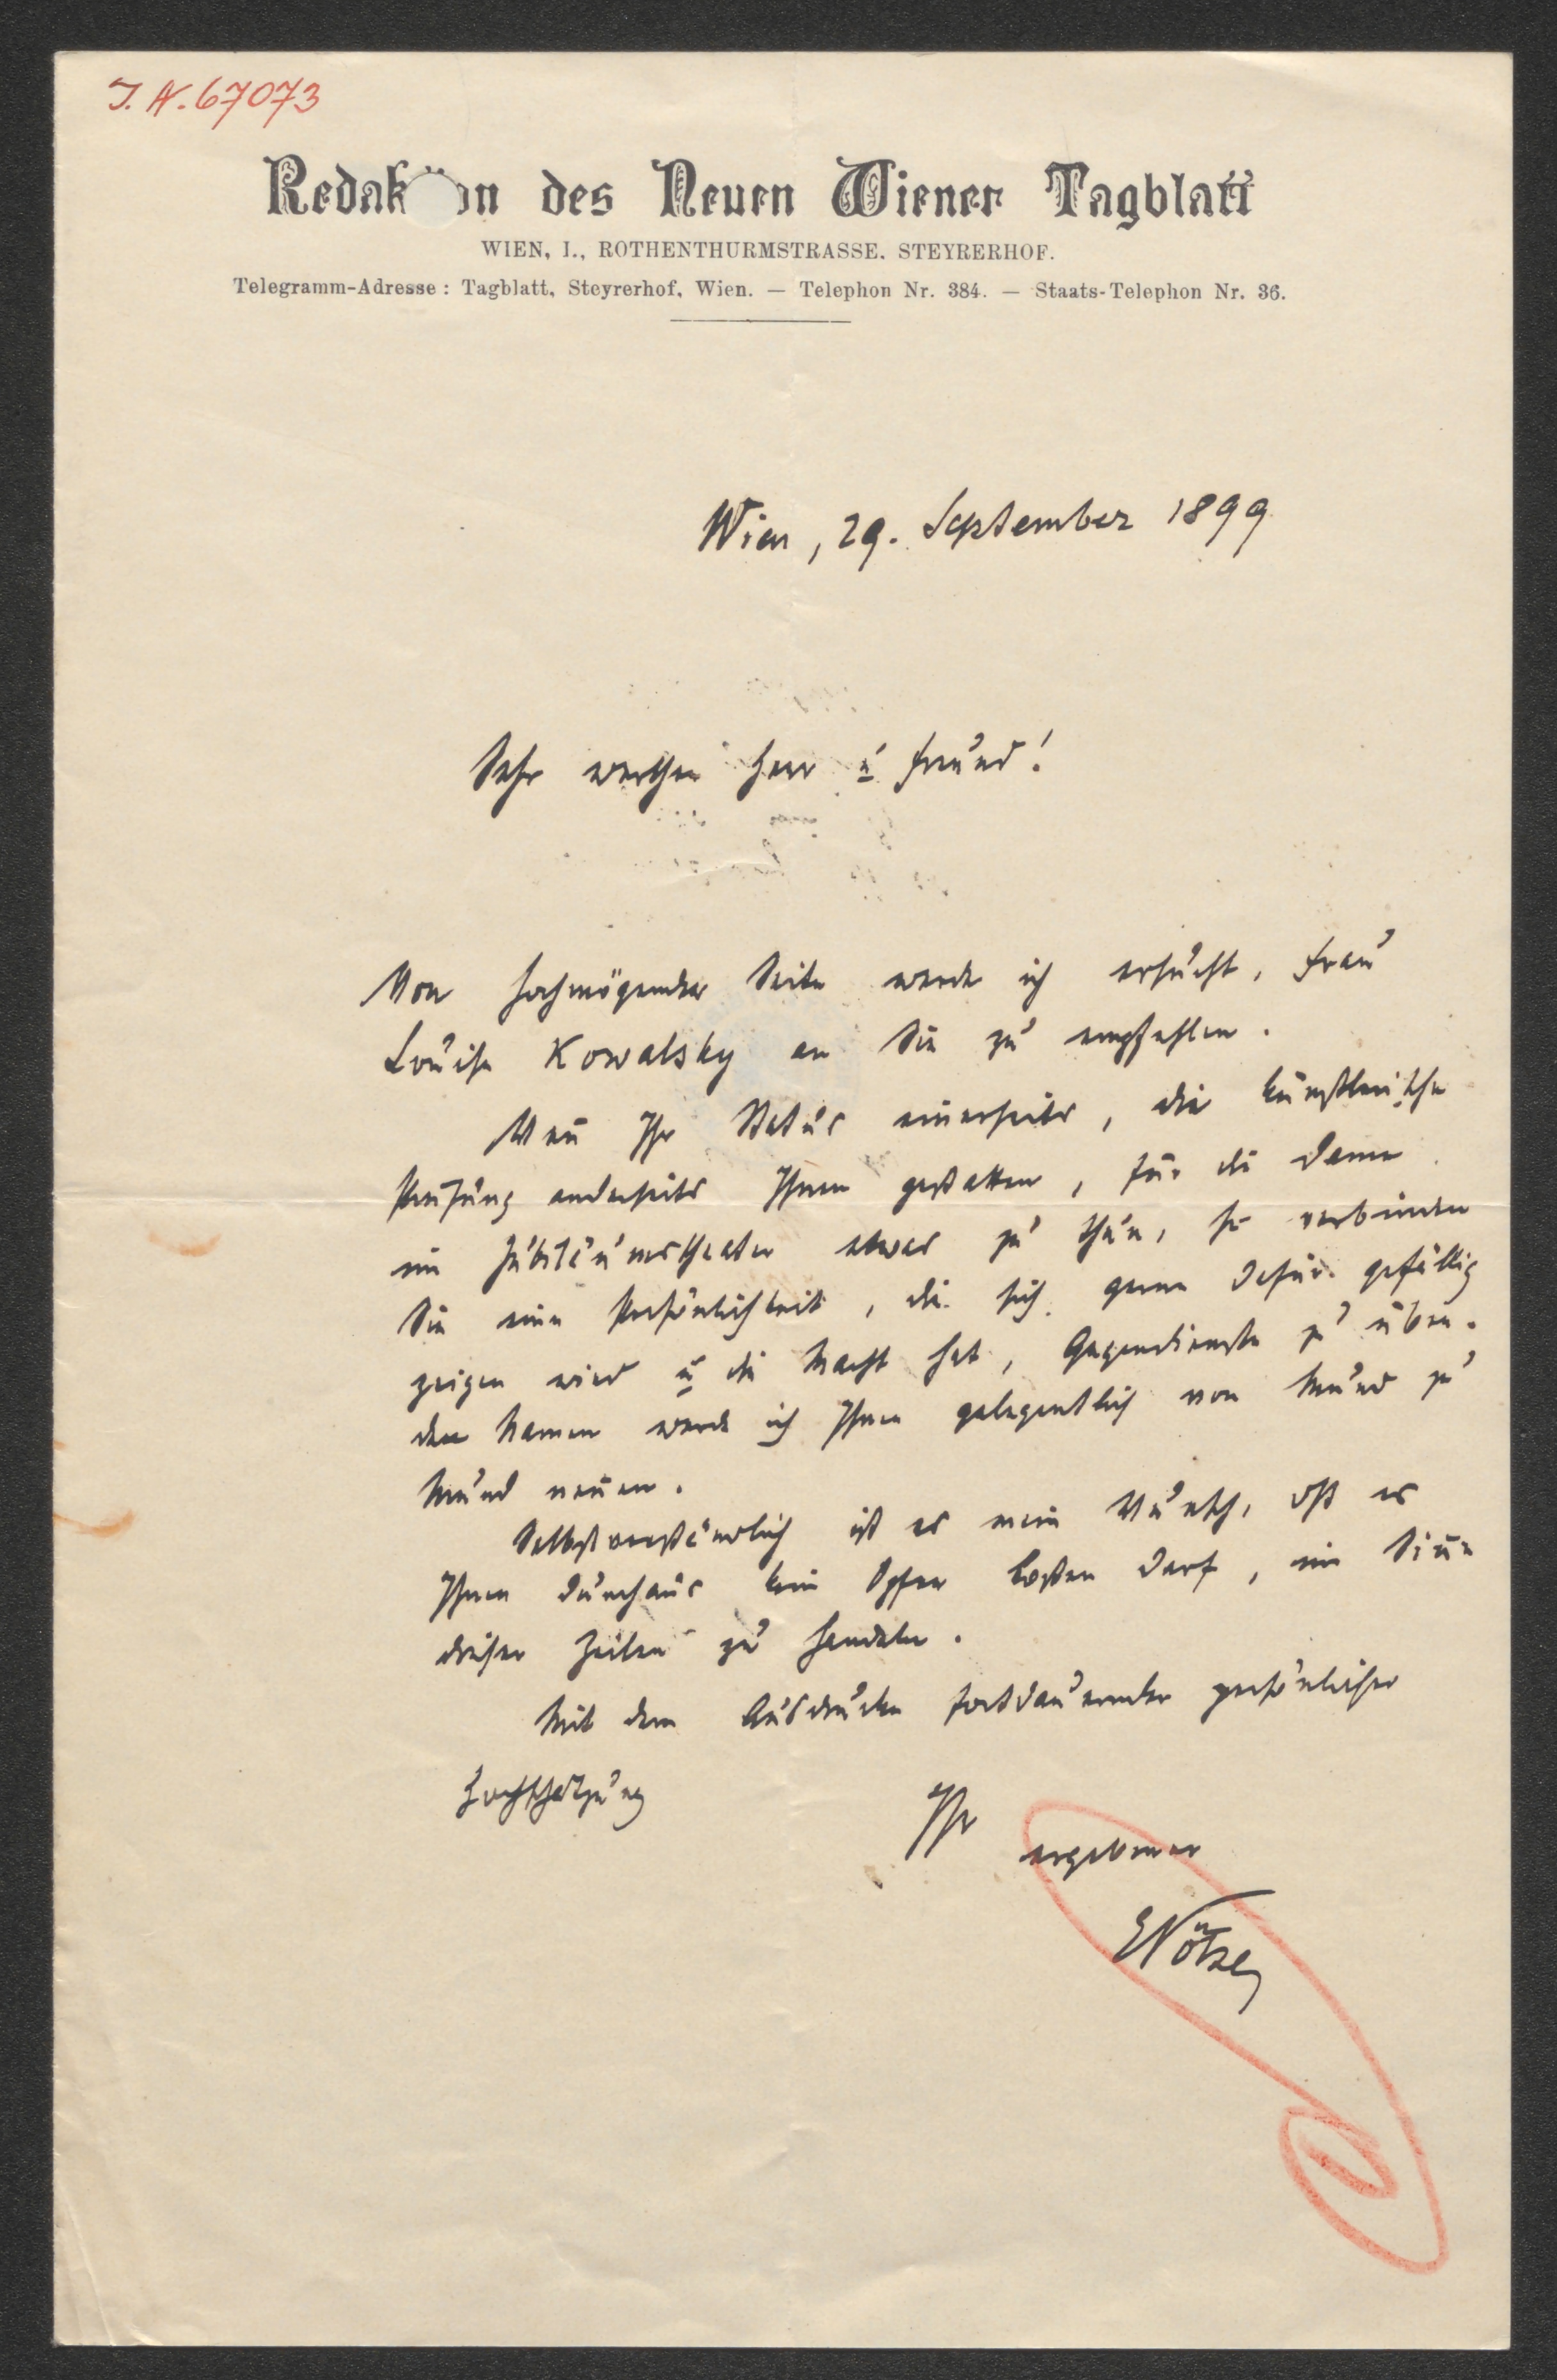 J. N. 67073
Redak on des Neuen Wiener Tagblatt
WIEN, I., ROTHENTHURMSTRASSE. STEYRERHOF.
Telegramm-Adresse: Tagblatt, Steyrerhof, Wien. — Telephon Nr. 384. — Staats-Telephon Nr. 36.
Wien, 29. September 1899
Sehr werther Herr u Freund!
Von hochmögender Seite werde ich ersucht, Frau
Louise Kowalsky an Sie zu empfehlen.
Wen̄ Ihr Status einerseits, die künstlerische
Prüfung anderseits Ihnen gestatten, für die Dame
im Jubiläumstheater etwas zu thun, so verbinden
Sie eine Persönlichkeit, die sich gerne dafür gefällig
zeigen wird u die Macht hat, Gegendienste zu üben.
den Namen werde ich Ihnen gelegentlich von Mund zu
Mund nen̄en.
Selbstverständlich ist es mein Wunsch, dß es
Ihnen durchaus kein Opfer kosten darf, im Sin̄e
dieser Zeilen zu handeln.
Mit dem Ausdrucke fortdauernder persönlicher
Hochschätzung
Ihr
ergebener